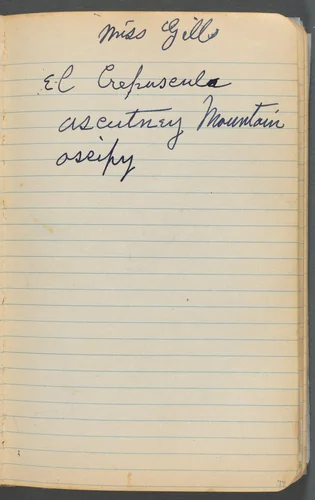 Miss Gills
El Crepuscula
ascutney Mountain
ossipy